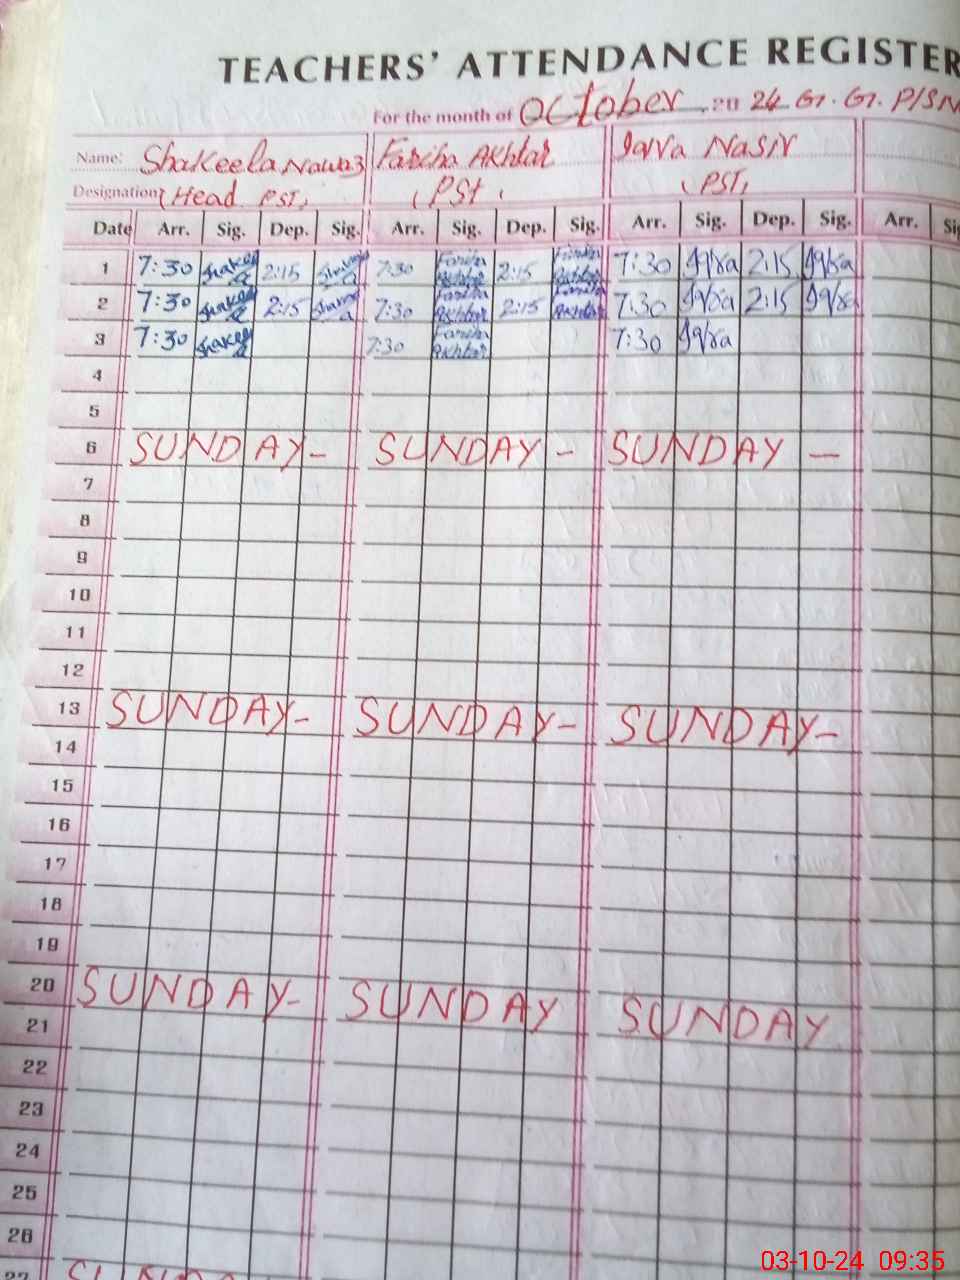 TEACHERS' ATTENDANCE REGISTER
For the month of October 2024 G. G. P/S N
Name: Shakeela Nawaz Fariha Akhtar Iqra Nasir
Designation (Head PST) (PST) (PST)
Date Arr. Sig. Dep. Sig. Arr. Sig. Dep. Sig. Arr. Sig. Dep. Sig. Arr. Sig
1 7:30 Shakeela 2:15 Shakeela 7:30 Fariha Akhtar 2:15 Fariha Akhtar 7:30 Iqra 2:15 Iqra
2 7:30 Shakeela 2:15 Shakeela 7:30 Fariha Akhtar 2:15 Fariha Akhtar 7:30 Iqra 2:15 Iqra
3 7:30 Shakeela 7:30 Fariha Akhtar 7:30 Iqra
4
5
6 SUNDAY- SUNDAY - SUNDAY -
7
8
9
10
11
12
13 SUNDAY- SUNDAY- SUNDAY-
14
15
16
17
18
19
20 SUNDAY- SUNDAY SUNDAY
21
22
23
24
25
26
27 SUNDA
03-10-24 09:35